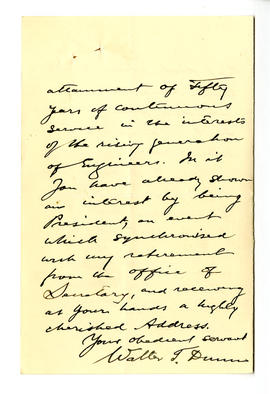 attainment of Fifty
years of continuous
service in the interests
of the rising generation
of Engineers. In it
You have already shown
an interest by being
President, an event
which synchronised
with my retirement
from the office of
Secretary, and receiving
at your hands a highly
cherished Address.
Your obedient servant
Walter T. Dunn